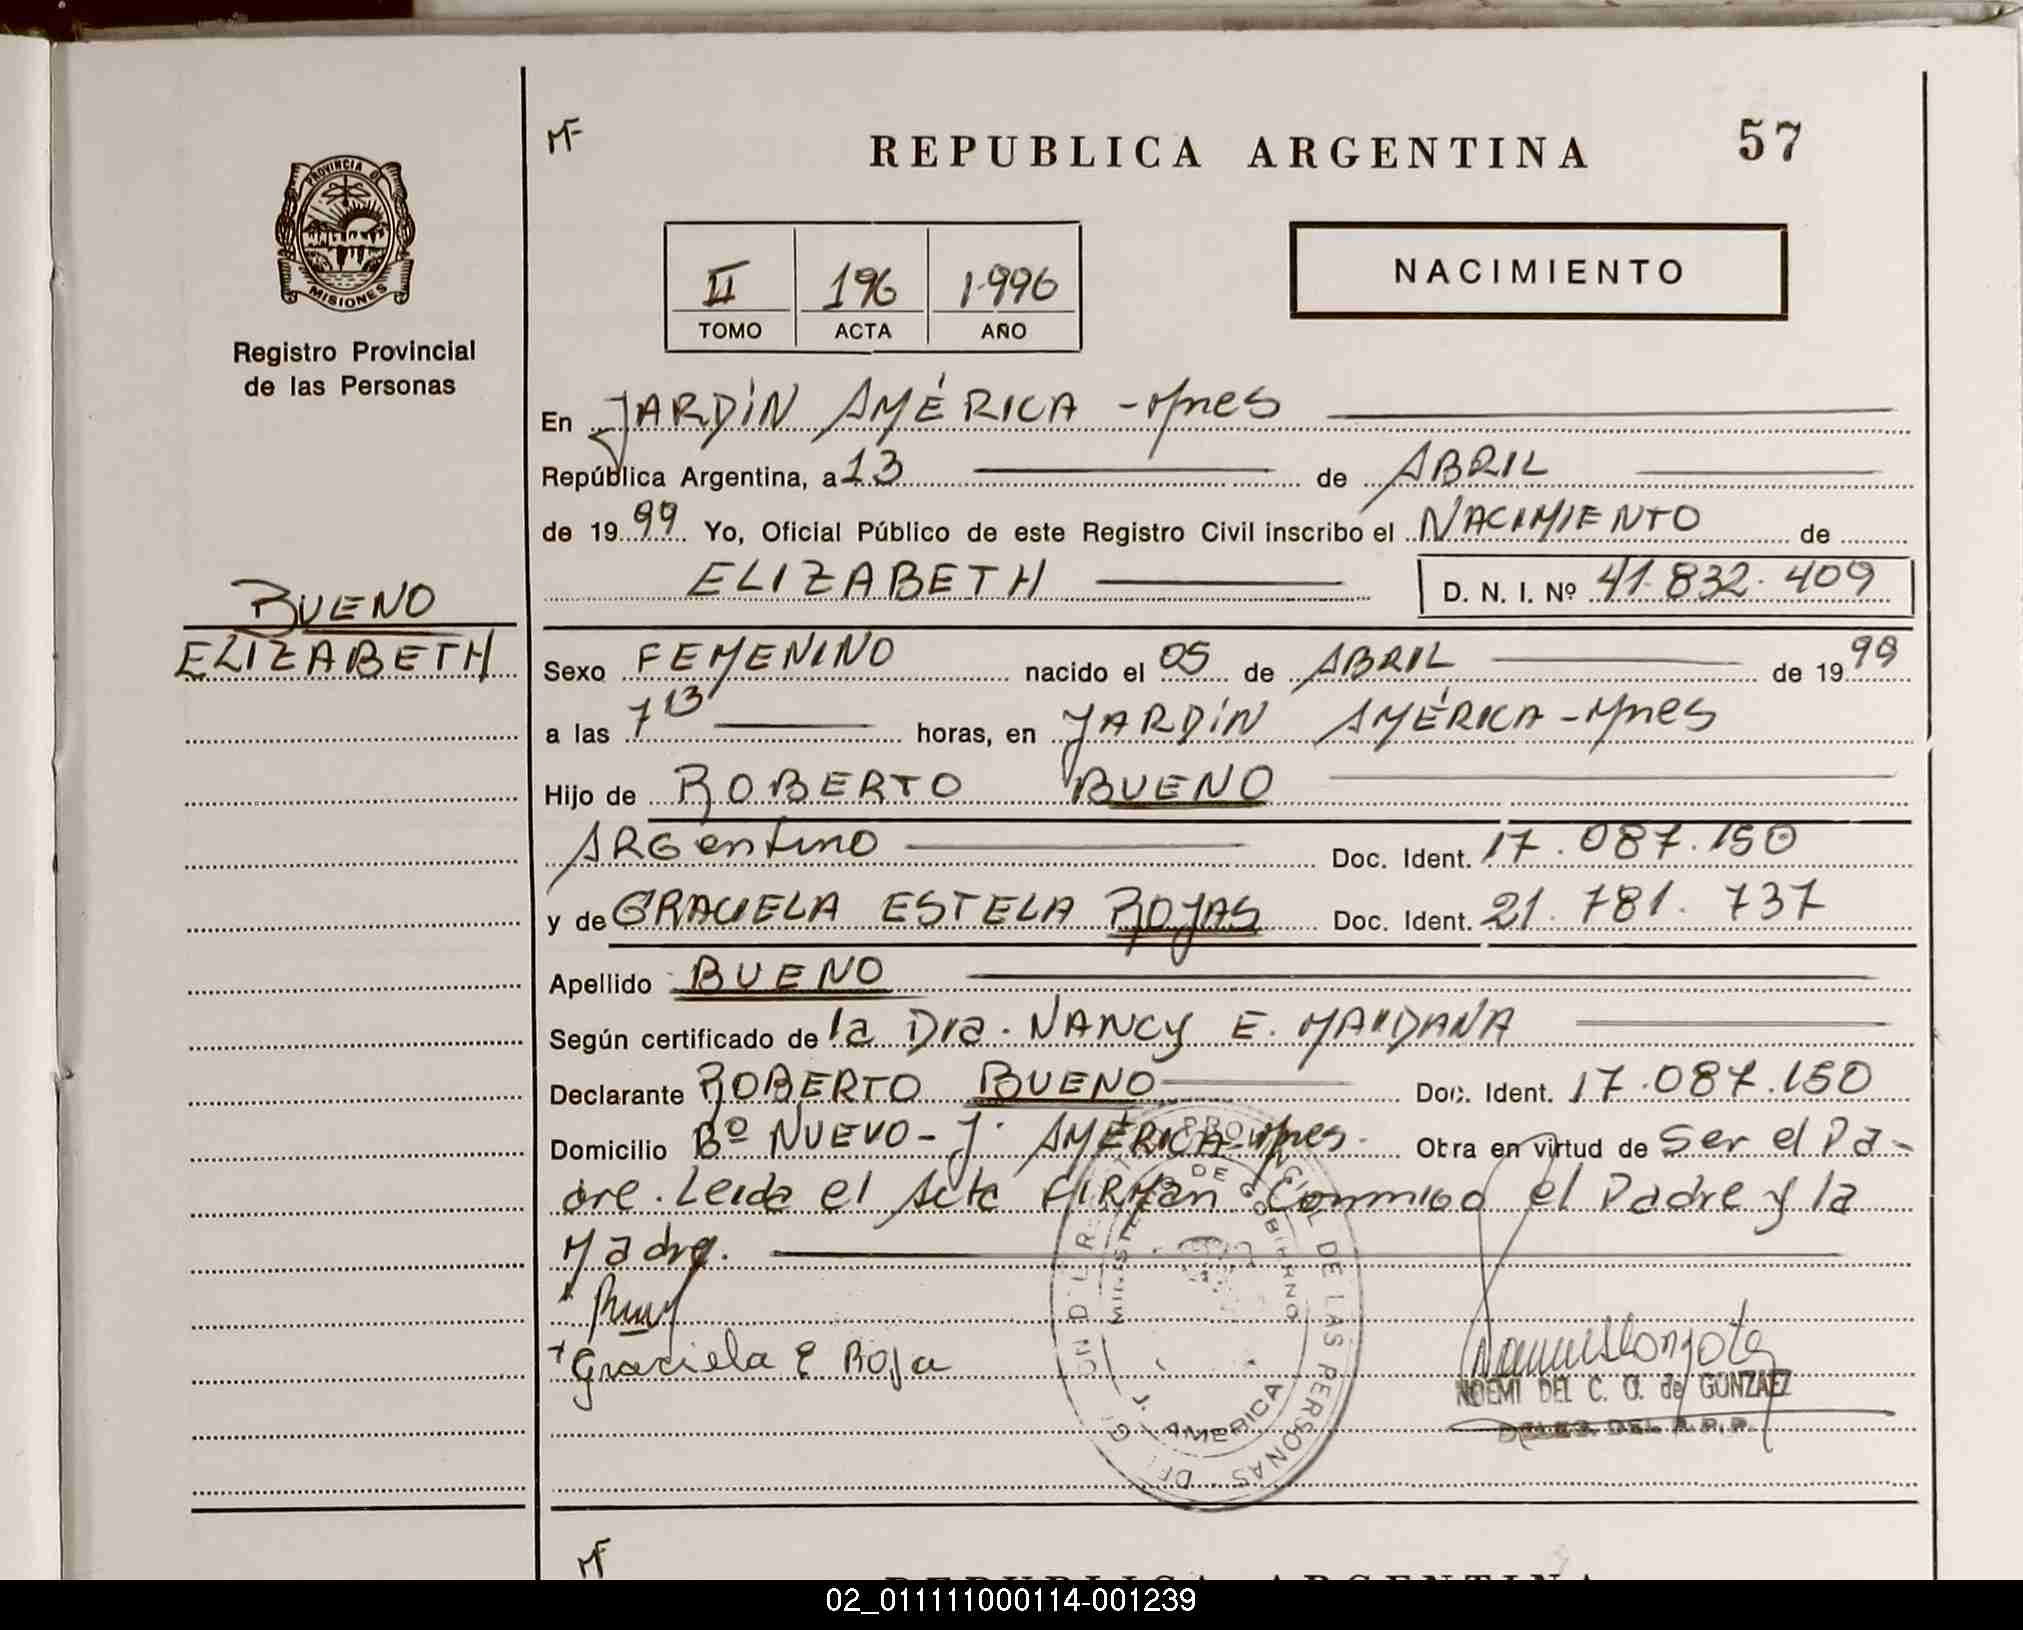 MF
REPUBLICA ARGENTINA 57
PROVINCIA D MISIONES
Registro Provincial
de las Personas
II 196 1.996
TOMO ACTA AÑO
NACIMIENTO
En JARDIN AMÉRICA - Mnes
República Argentina, a 13 de ABRIL
de 1999 Yo, Oficial Público de este Registro Civil inscribo el NACIMIENTO de
ELIZABETH D. N. I. Nº 41.832.409
BUENO
ELIZABETH
Sexo FEMENINO nacido el 05 de ABRIL de 1999
a las 7 13 horas, en JARDIN AMÉRICA - Mnes
Hijo de ROBERTO BUENO
ARGentino Doc. Ident. 17.087.150
y de GRACIELA ESTELA ROJAS Doc. Ident. 21.781.737
Apellido BUENO
Según certificado de la Dra. NANCY E. MAIDANA
Declarante ROBERTO BUENO Doc. Ident. 17.087.150
Domicilio Bº NUEVO - J. AMÉRICA - Mnes. Obra en virtud de Ser el Pa-
dre. Leida el Acta FIRMan Conmigo el Padre y la
Madre.
Graciela E Roja
DE LAS PERSONAS
J. AMERICA
NOEMI DEL C. O. de GONZALEZ
DEL R.P.P.
MF
REPUBLICA ARGENTINA
02_011111000114-001239